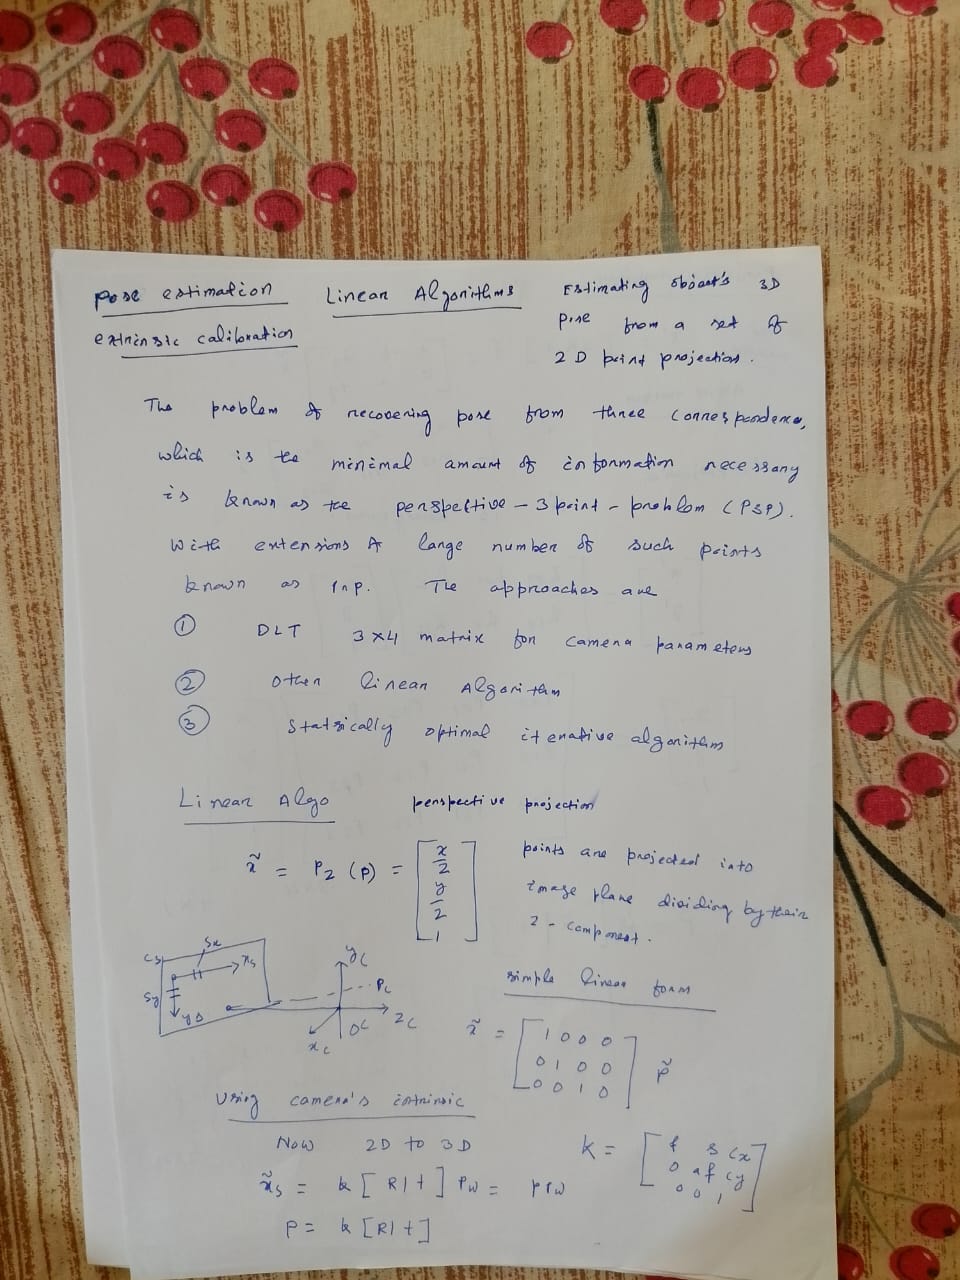 pose estimation
extrinsic calibration
Linear Algorithms
Estimating object's 3D
pose from a set of
2D point projection.
The problem of recovering pose from three correspondence,
which is the minimal amount of information necessary
is known as the perspective-3point-problem (P3P).
With extensions to large number of such points
known as PnP. The approaches are
① DLT 3x4 matrix for camera parameters
② other linear Algorithm
③ Statsically optimal iterative algorithm
Linear Algo
perspective projection
x̃ = Pz (p) = [x/z y/z 1]
points are projected into
image plane dividing by their
z-component.
cs sx xs
sy ys
yc
pc
oc zc
xc
simple linear form
x̃ = [1 0 0 0
0 1 0 0
0 0 1 0] p̃
Using camera's intrinsic
Now 2D to 3D
x̃s = K [R|t] Pw = PPw
P = K [R|t]
K = [f s cx
0 af cy
0 0 1]